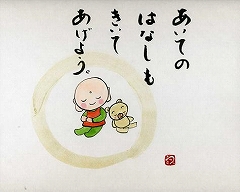 あいての
はなしも
きいて
あげよう。